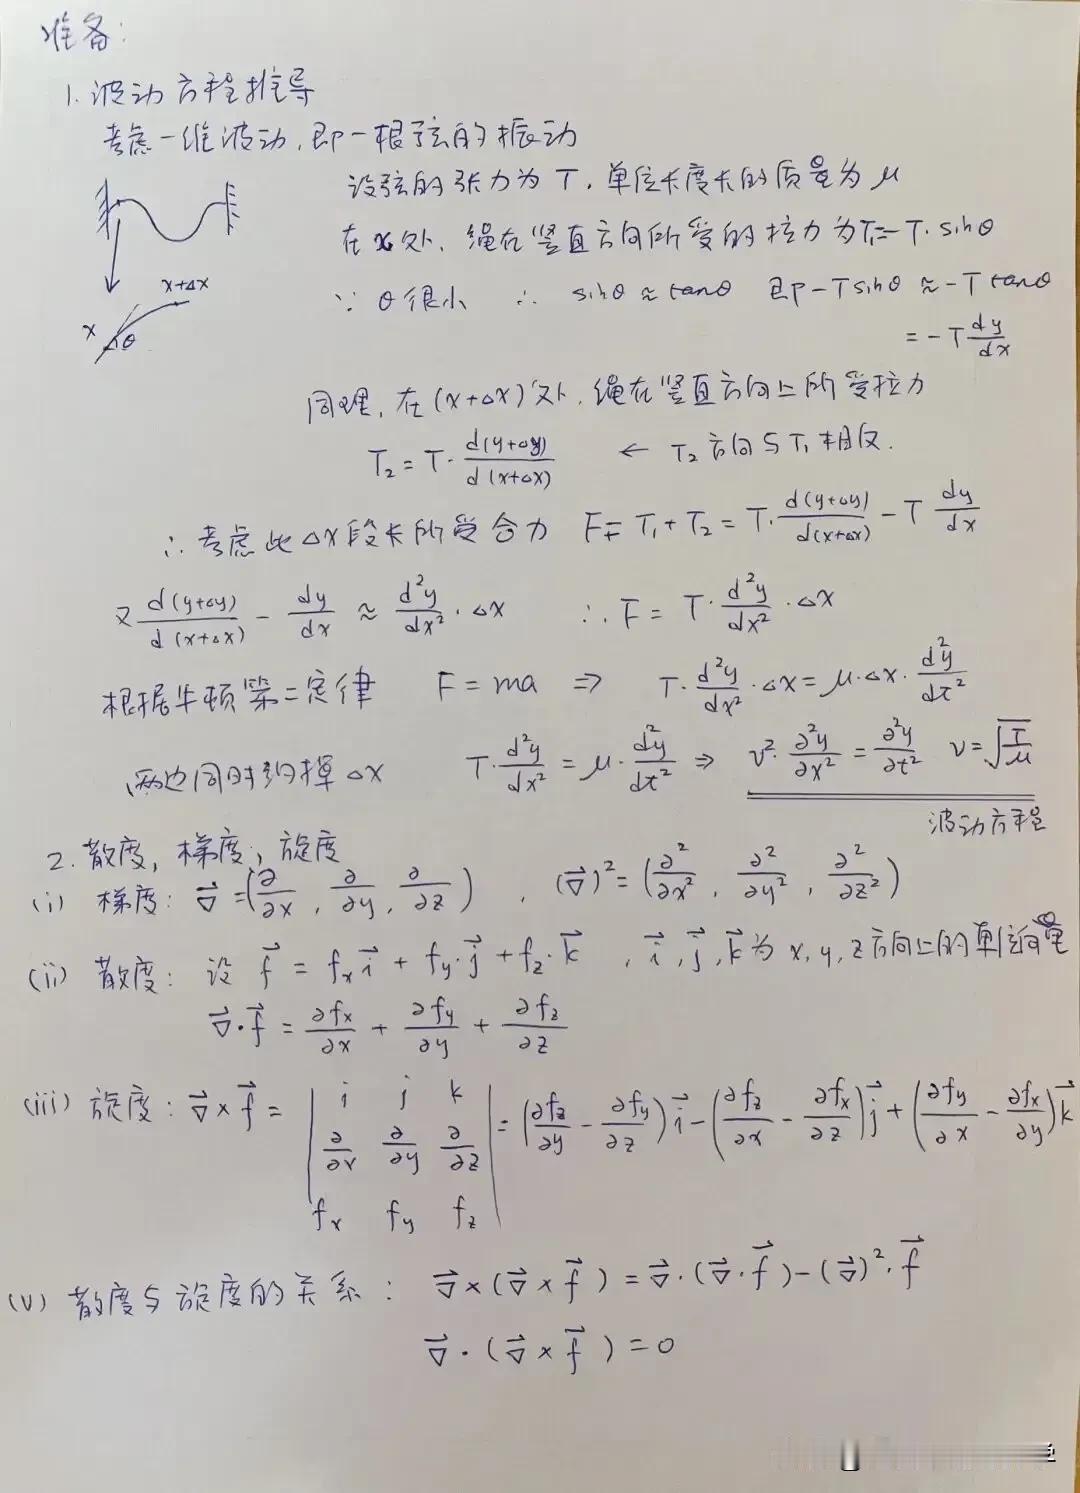 准备:
1. 波动方程推导
考虑一维波动,即一根弦的振动
设弦的张力为 T, 单位长度长的质量为 μ
在 x 处, 绳在竖直方向所受的拉力为 T₁=-T·sinθ
∵ θ很小 ∴ sinθ ≈ tanθ 即 -Tsinθ ≈ -T tanθ
= -T dy/dx
x+Δx
x θ
同理, 在 (x+Δx) 处, 绳在竖直方向上所受拉力
T₂ = T· d(y+Δy)/d(x+Δx) ← T₂ 方向与 T₁ 相反.
∴ 考虑此 Δx 段长所受合力 F = T₁+T₂ = T· d(y+Δy)/d(x+Δx) - T dy/dx
又 d(y+Δy)/d(x+Δx) - dy/dx ≈ d²y/dx² · Δx ∴ F = T· d²y/dx² · Δx
根据牛顿第二定律 F = ma ⇒ T· d²y/dx² · Δx = μ·Δx· d²y/dt²
两边同时约掉 Δx T· d²y/dx² = μ· d²y/dt² ⇒ v²· ∂²y/∂x² = ∂²y/∂t² v=√(T/μ)
波动方程
2. 散度, 梯度, 旋度
(i) 梯度: ∇⃗ = (∂/∂x, ∂/∂y, ∂/∂z), (∇⃗)² = (∂²/∂x², ∂²/∂y², ∂²/∂z²)
(ii) 散度: 设 f⃗ = fₓi⃗ + f_y·j⃗ + f_z·k⃗, i⃗, j⃗, k⃗ 为 x, y, z 方向上的单位向量
∇⃗·f⃗ = ∂fₓ/∂x + ∂f_y/∂y + ∂f_z/∂z
(iii) 旋度: ∇⃗×f⃗ = | i j k ; ∂/∂x ∂/∂y ∂/∂z ; fₓ f_y f_z | = (∂f_z/∂y - ∂f_y/∂z)i⃗ - (∂f_z/∂x - ∂fₓ/∂z)j⃗ + (∂f_y/∂x - ∂fₓ/∂y)k⃗
(v) 散度与旋度的关系: ∇⃗×(∇⃗×f⃗) = ∇⃗·(∇⃗·f⃗) - (∇⃗)²·f⃗
∇⃗·(∇⃗×f⃗) = 0